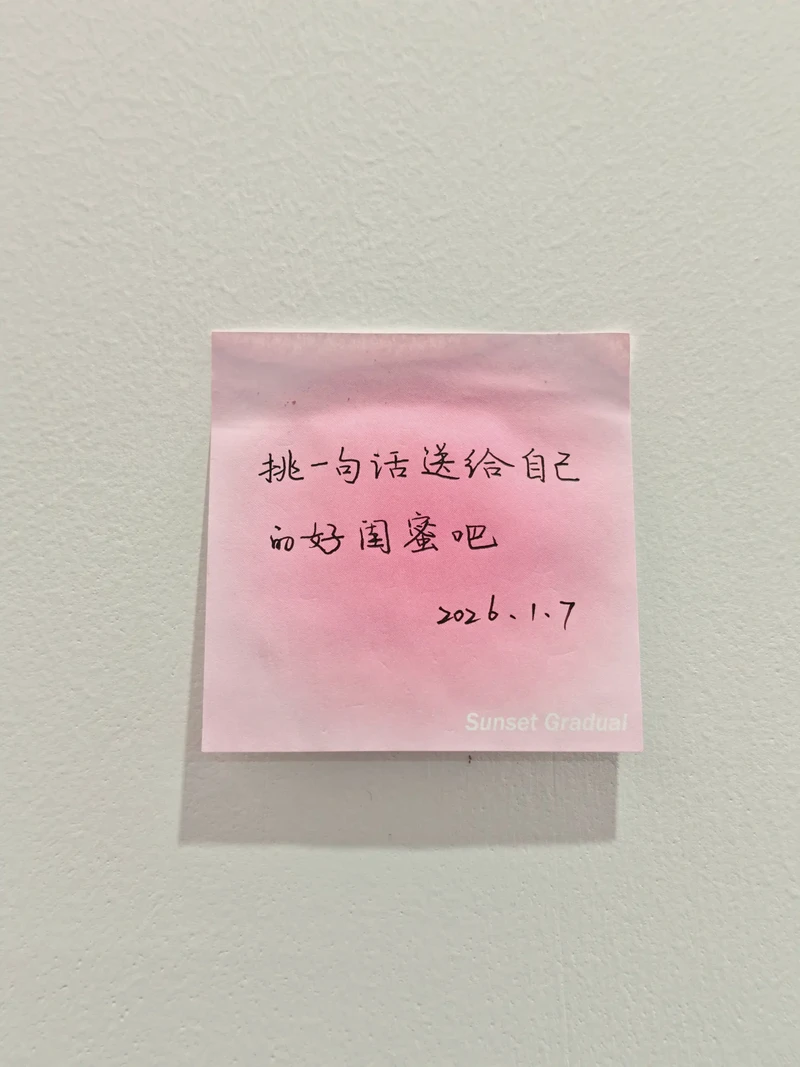 挑一句话送给自己
的好闺蜜吧
2026.1.7
Sunset Gradual